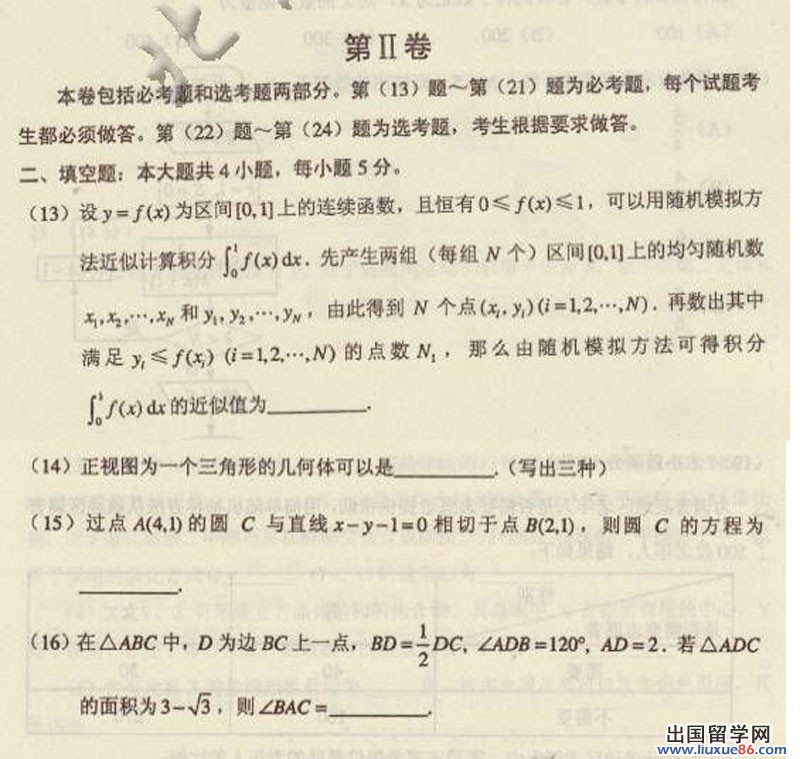 第Ⅱ卷
本卷包括必考题和选考题两部分。第（13）题～第（21）题为必考题，每个试题考
生都必须做答。第（22）题～第（24）题为选考题，考生根据要求做答。
二、填空题：本大题共4小题，每小题5分。
（13）设 y=f(x) 为区间[0,1]上的连续函数，且恒有 0≤f(x)≤1，可以用随机模拟方
法近似计算积分 ∫₀¹ f(x)dx．先产生两组（每组 N 个）区间[0,1]上的均匀随机数
x₁,x₂,⋯,x_N 和 y₁,y₂,⋯,y_N，由此得到 N 个点(x_i,y_i)(i=1,2,⋯,N)．再数出其中
满足 y_i≤f(x_i) (i=1,2,⋯,N) 的点数 N₁，那么由随机模拟方法可得积分
∫₀¹ f(x)dx 的近似值为________.
（14）正视图为一个三角形的几何体可以是________.（写出三种）
（15）过点 A(4,1) 的圆 C 与直线 x−y−1=0 相切于点 B(2,1)，则圆 C 的方程为
________.
（16）在△ABC 中，D 为边 BC 上一点，BD=1/2 DC, ∠ADB=120°, AD=2．若△ADC
的面积为 3−√3，则∠BAC=________.
出国留学网
www.liuxue86.com